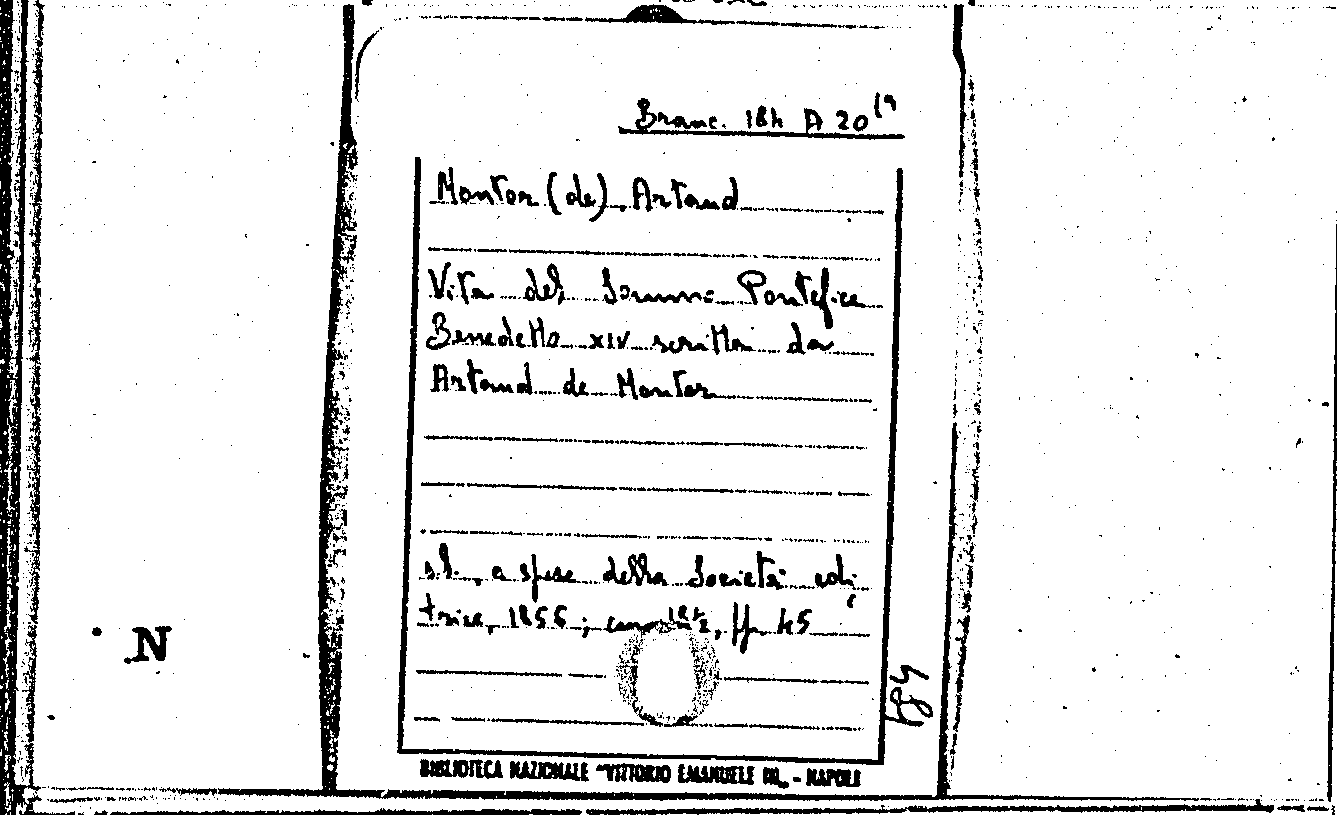 Branc. 184 A 20 (9
Montor (de) Artaud
Vita del Sommo Pontefice
Benedetto XIV scritta da
Artaud de Montor
s.l., a spese della Società edi
trice, 1856; cm. , pp. 45
N
BIBLIOTECA NAZIONALE "VITTORIO EMANUELE III" - NAPOLI